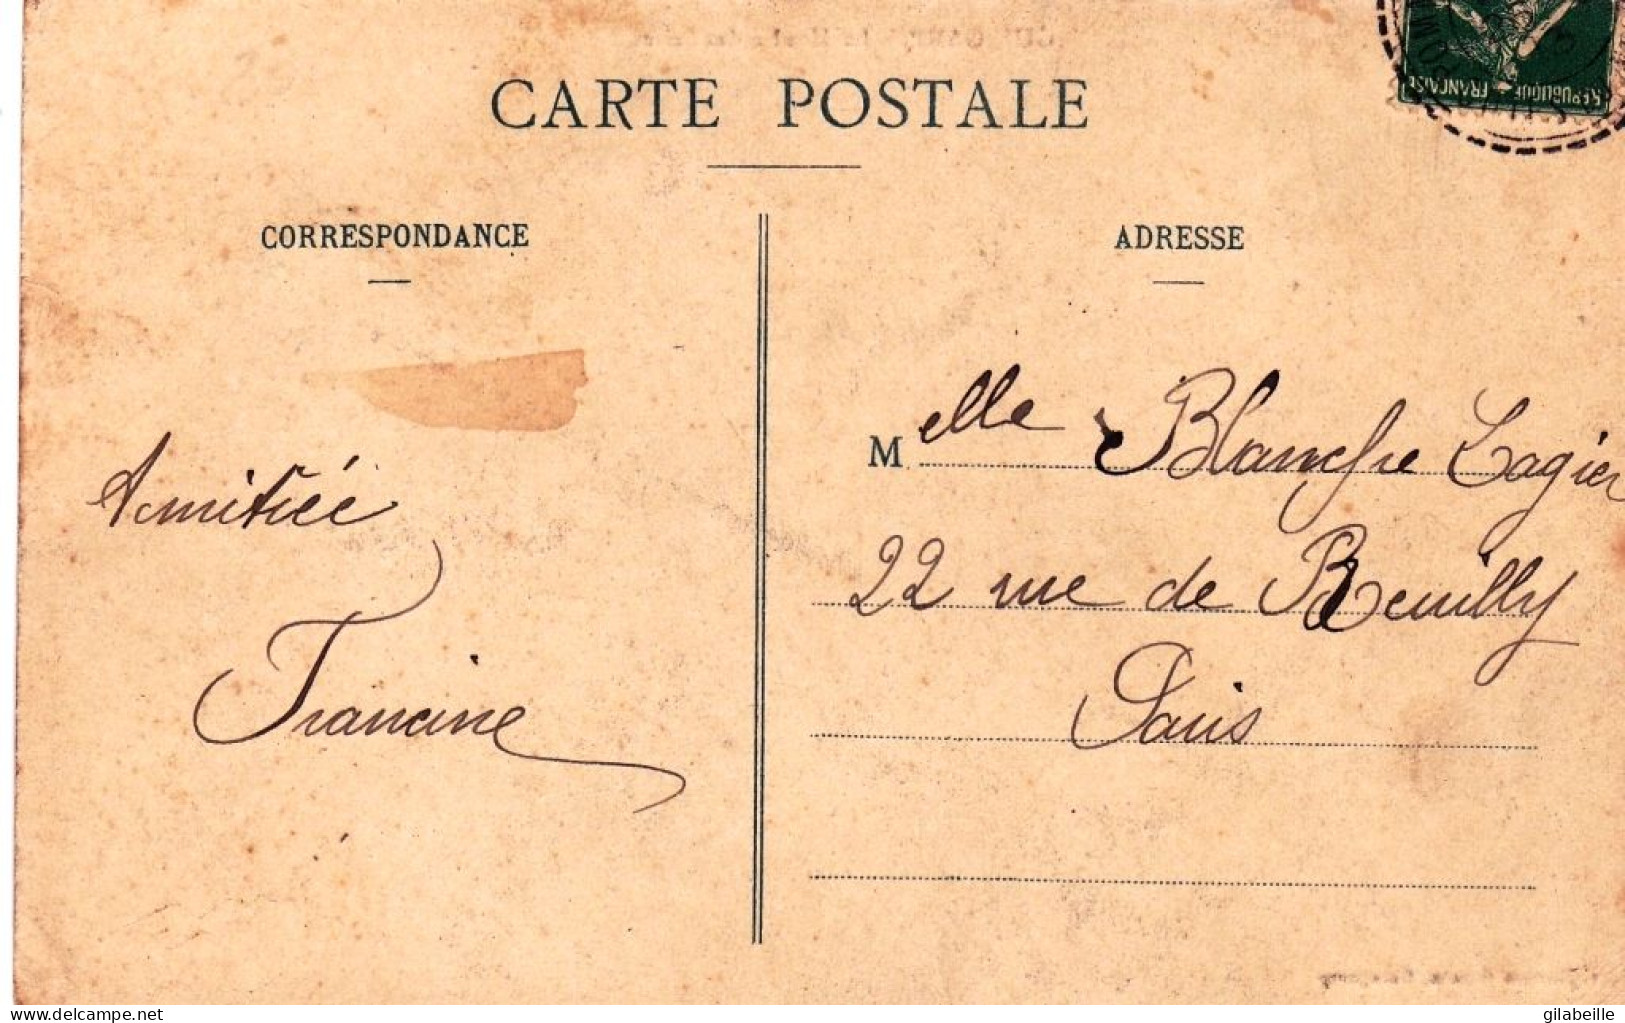 CARTE POSTALE
CORRESPONDANCE
ADRESSE
REPUBLIQUE FRANÇAISE
Melle Blanche Lagier
22 rue de Reuilly
Paris
Amitiée
Francine
delcampe.net
gilabeille